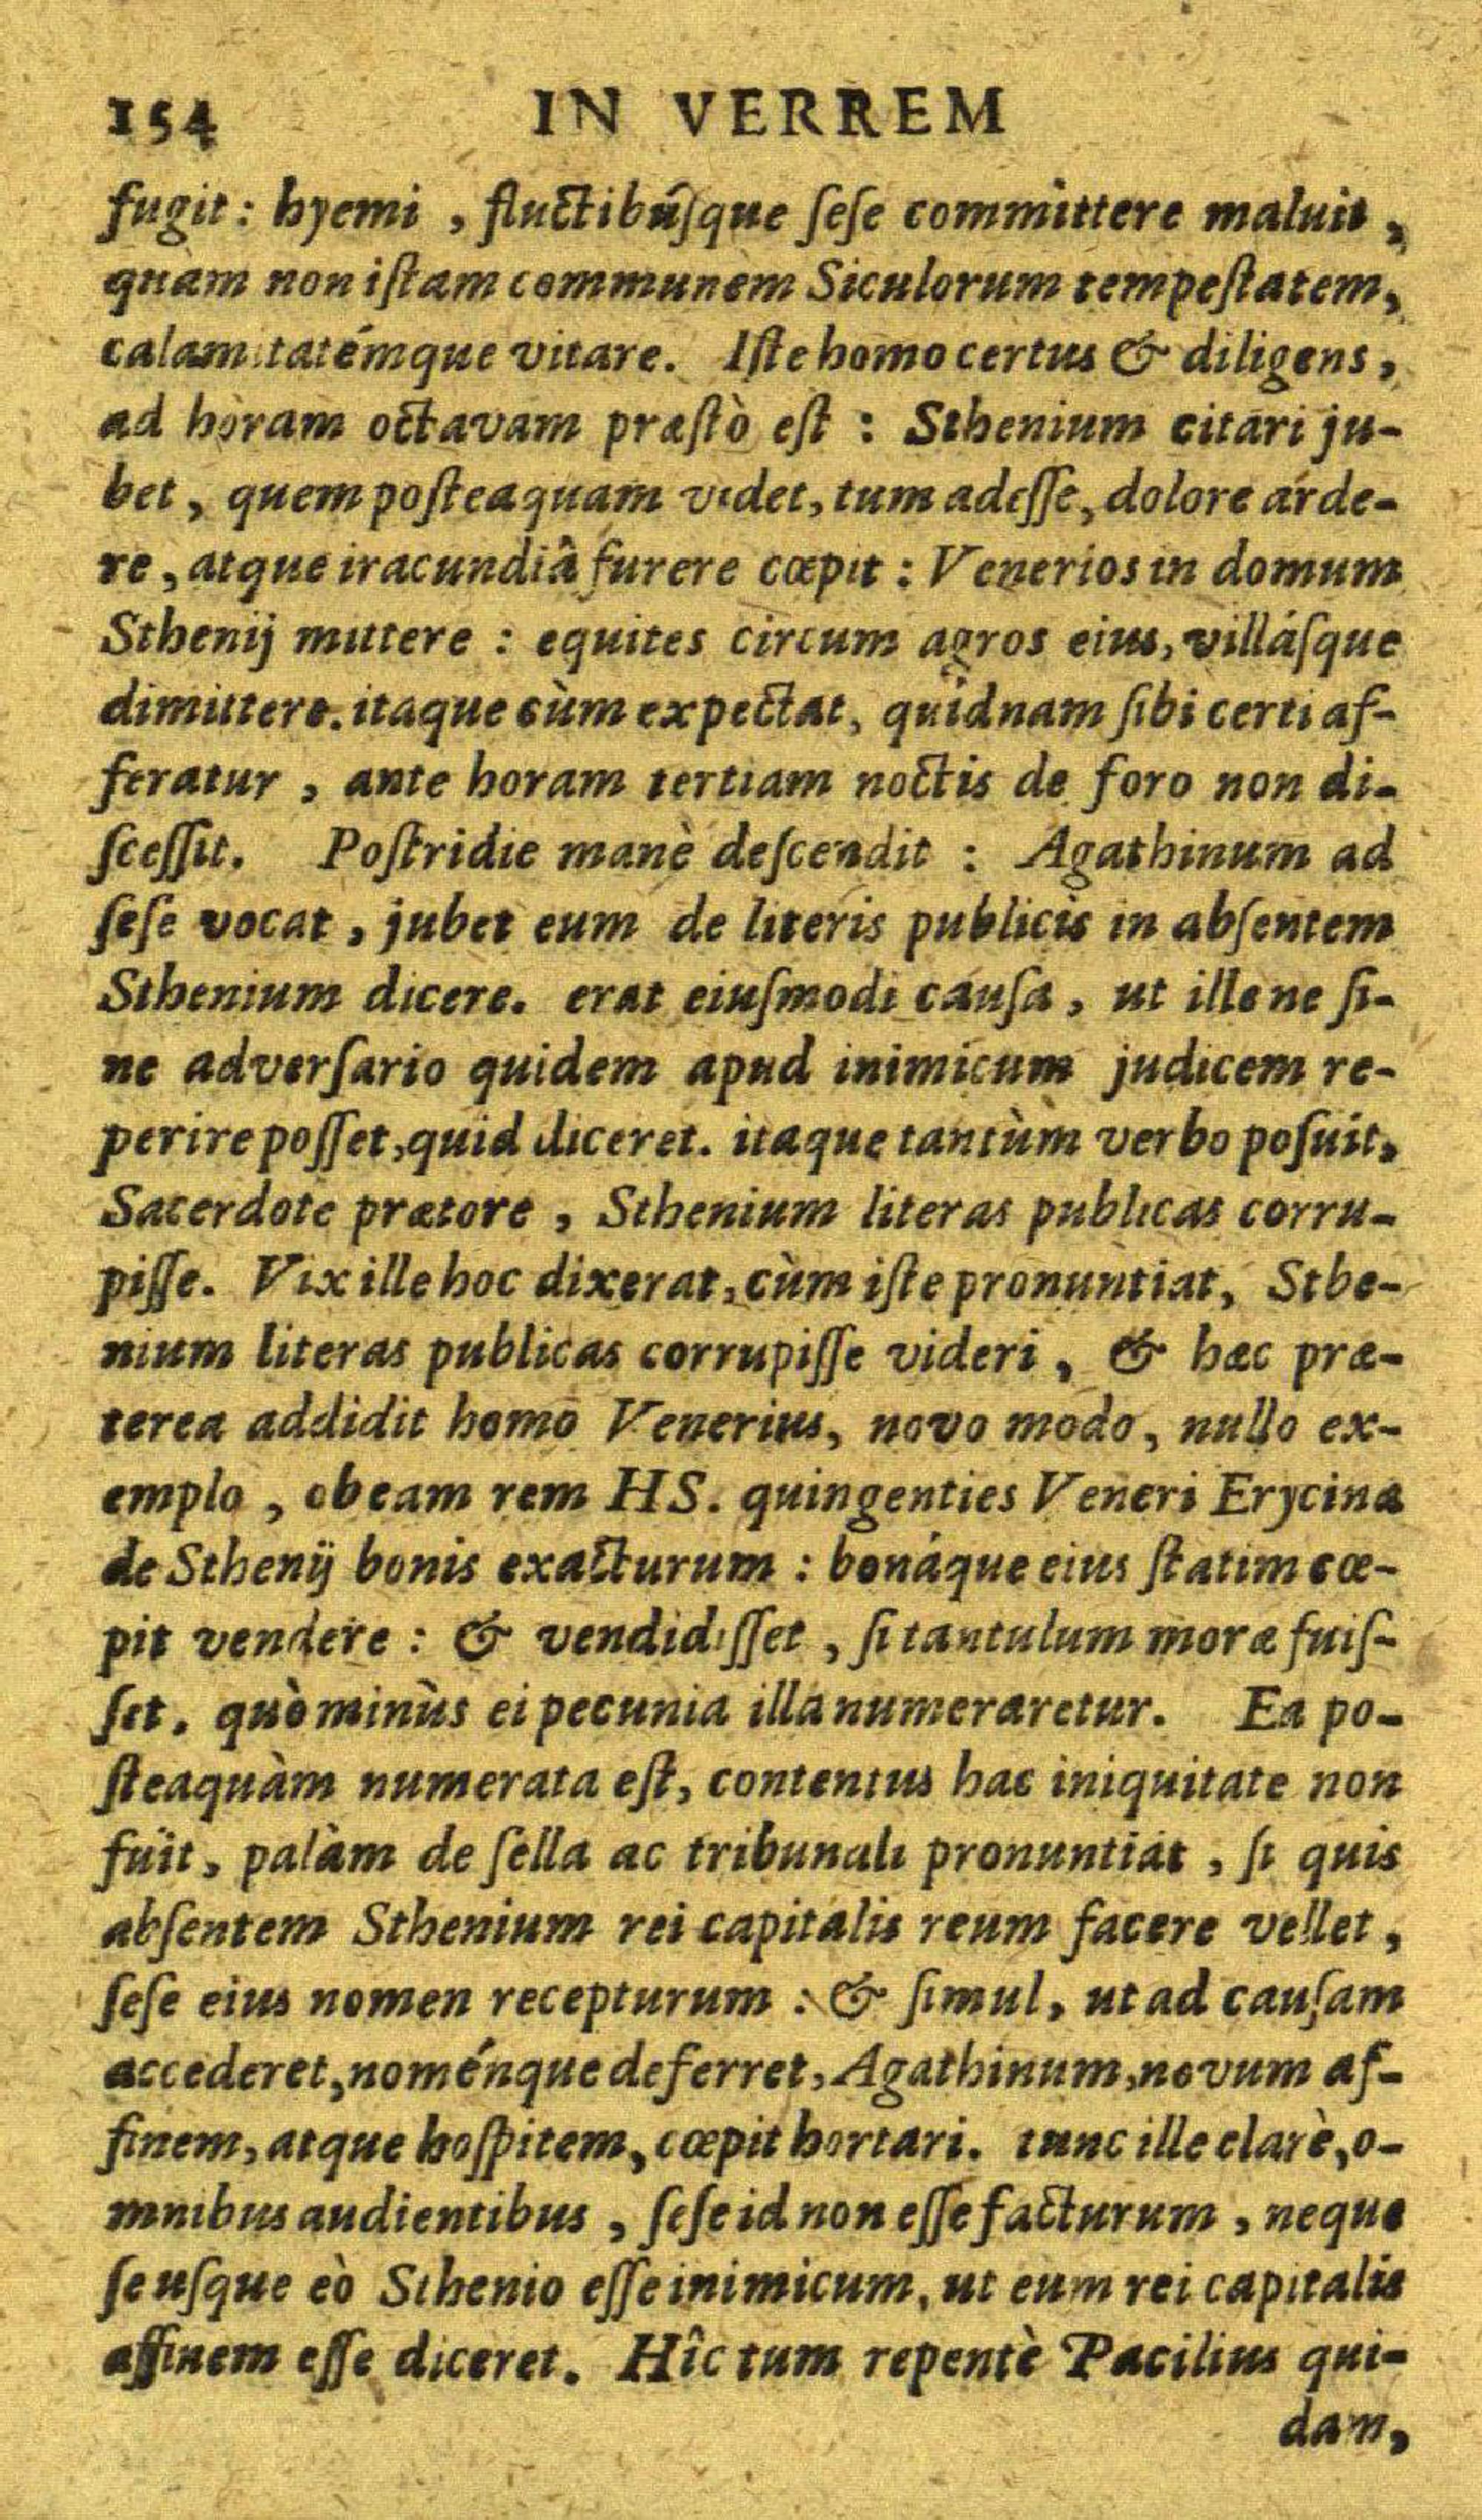 154 IN VERREM
fugit: hyemi , fluctibúſque ſeſe committere maluit ,
quàm non iſtam communem Siculorum tempeſtatem,
calamitatémque vitare. Iſte homo certus & diligens ,
ad horam octavam præſtò eſt : Sthenium citari ju-
bet , quem poſteaquam videt, tum adeſſe, dolore arde-
re , atque iracundiâ furere cœpit : Venerios in domum
Sthenij mittere : equites circum agros eius, villáſque
dimittere. itaque cùm expectat, quidnam ſibi certi af-
feratur , ante horam tertiam noctis de foro non di-
ſceſſit. Poſtridie manè deſcendit : Agathinum ad
ſeſe vocat , jubet eum de literis publicis in abſentem
Sthenium dicere. erat eiuſmodi cauſa , ut ille ne ſi-
ne adverſario quidem apud inimicum judicem re-
perire poſſet, quid diceret. itaque tantùm verbo poſuit,
Sacerdote prætore , Sthenium literas publicas corru-
piſſe. Vix ille hoc dixerat, cùm iſte pronuntiat, Sthe-
nium literas publicas corrupiſſe videri , & hæc præ-
terea addidit homo Venerius, novo modo, nullo ex-
emplo , ob eam rem HS. quingenties Veneri Erycinæ
de Sthenij bonis exacturum : bonáque eius ſtatim cœ-
pit vendere : & vendidiſſet , ſi tantulum moræ fuiſ-
ſet. quò minùs ei pecunia illa numeraretur. Ea po-
ſteaquàm numerata eſt, contentus hac iniquitate non
fuit, palàm de ſella ac tribunali pronuntiat , ſi quis
abſentem Sthenium rei capitalis reum facere vellet ,
ſeſe eius nomen recepturum : & ſimul, ut ad cauſam
accederet, noménque deferret, Agathinum, novum af-
finem, atque hoſpitem, cœpit hortari. tunc ille clarè, o-
mnibus audientibus , ſeſe id non eſſe facturum , neque
ſe uſque eò Sthenio eſſe inimicum, ut eum rei capitalis
affinem eſſe diceret. Hîc tum repentè Pacilius qui-
dam,